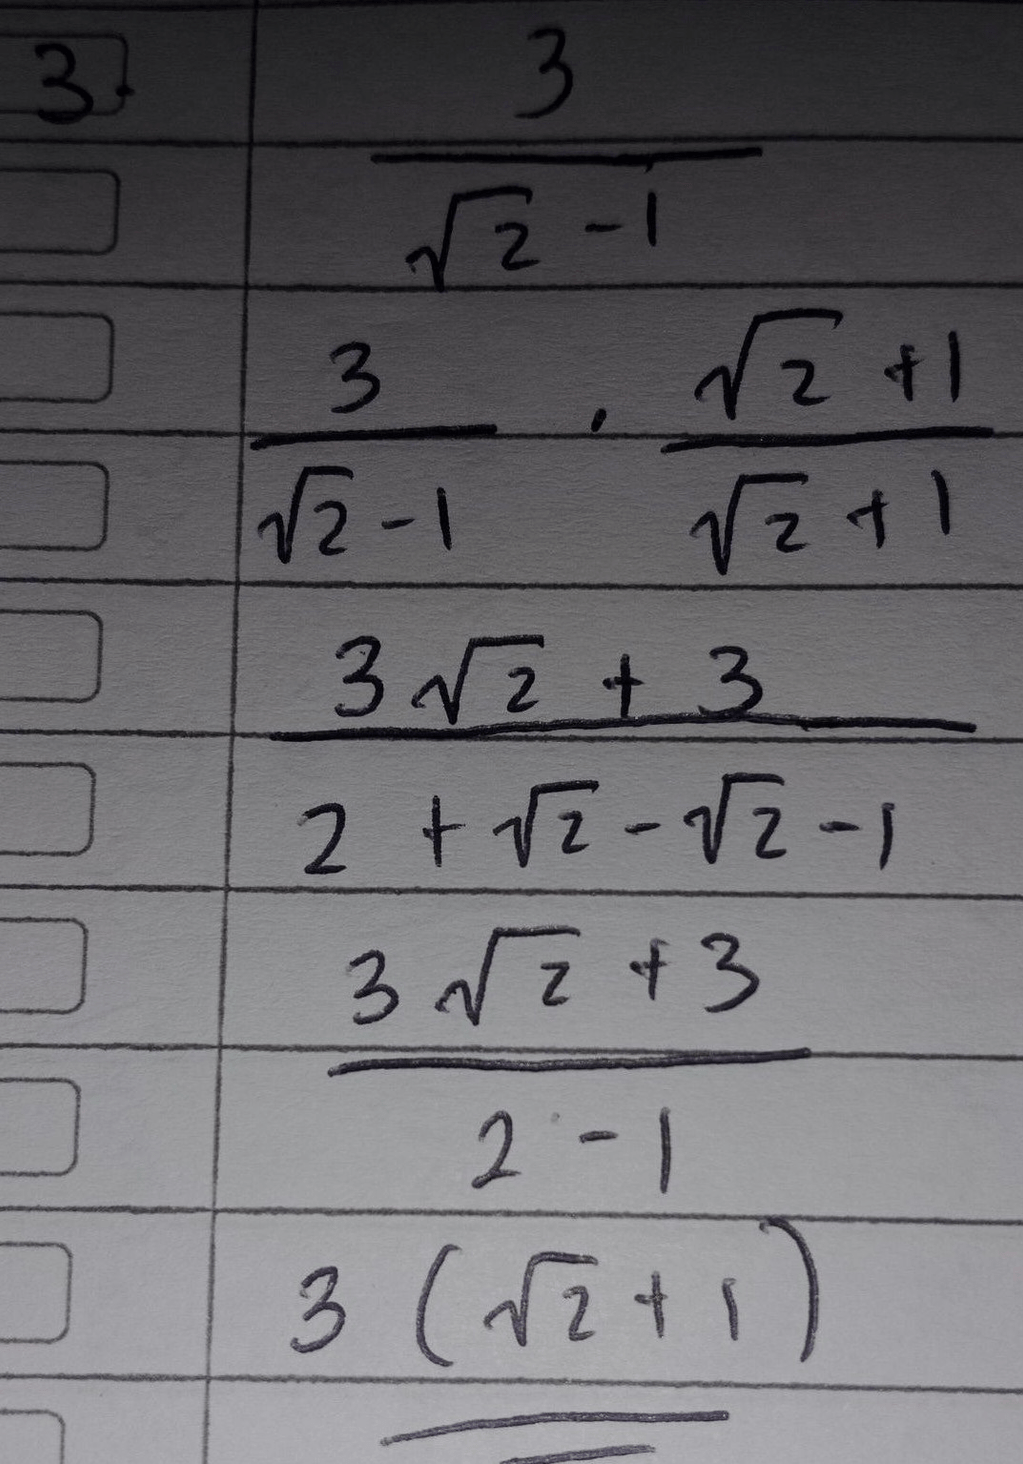 3. 3
√2 - 1
3 . √2 + 1
√2 - 1 √2 + 1
3√2 + 3
2 + √2 - √2 - 1
3√2 + 3
2 - 1
3 (√2 + 1)